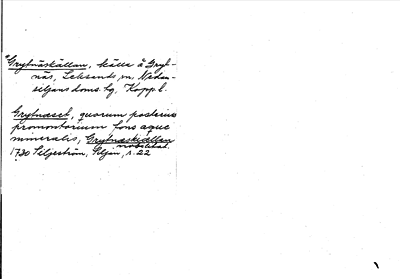 °Grytnäskällan, källa å Gryt-
näs, Leksands sn, Nedan-
siljans doms. tg. Kopp. l.
Grytnaset, quorum posterius
promontorium fons aquæ
mineralis, Grytnaskiällan
nobilitat.
1730 Siljeström, Siljan, s. 22